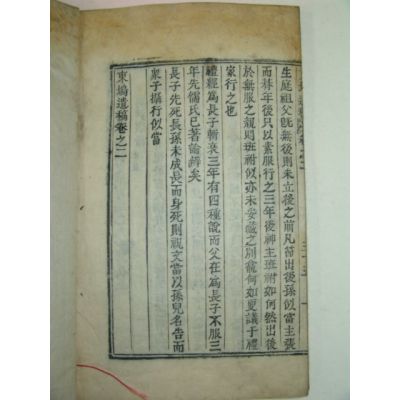 生庭祖父旣無後則未立後之前凡節出後孫似當主張
而朞年後只以素服行之三年後神主班祔如何然出後
於無服之親則班祔似亦未安藏之別龕何如更議于禮
家行之也
禮經爲長子斬衰三年有四種說而父在爲長子不服三
年先儒氏已著論辨矣
長子先死長孫未成長而身死則祝文當以孫兒名告而
衆子攝行似當
東塢遺稿卷之二